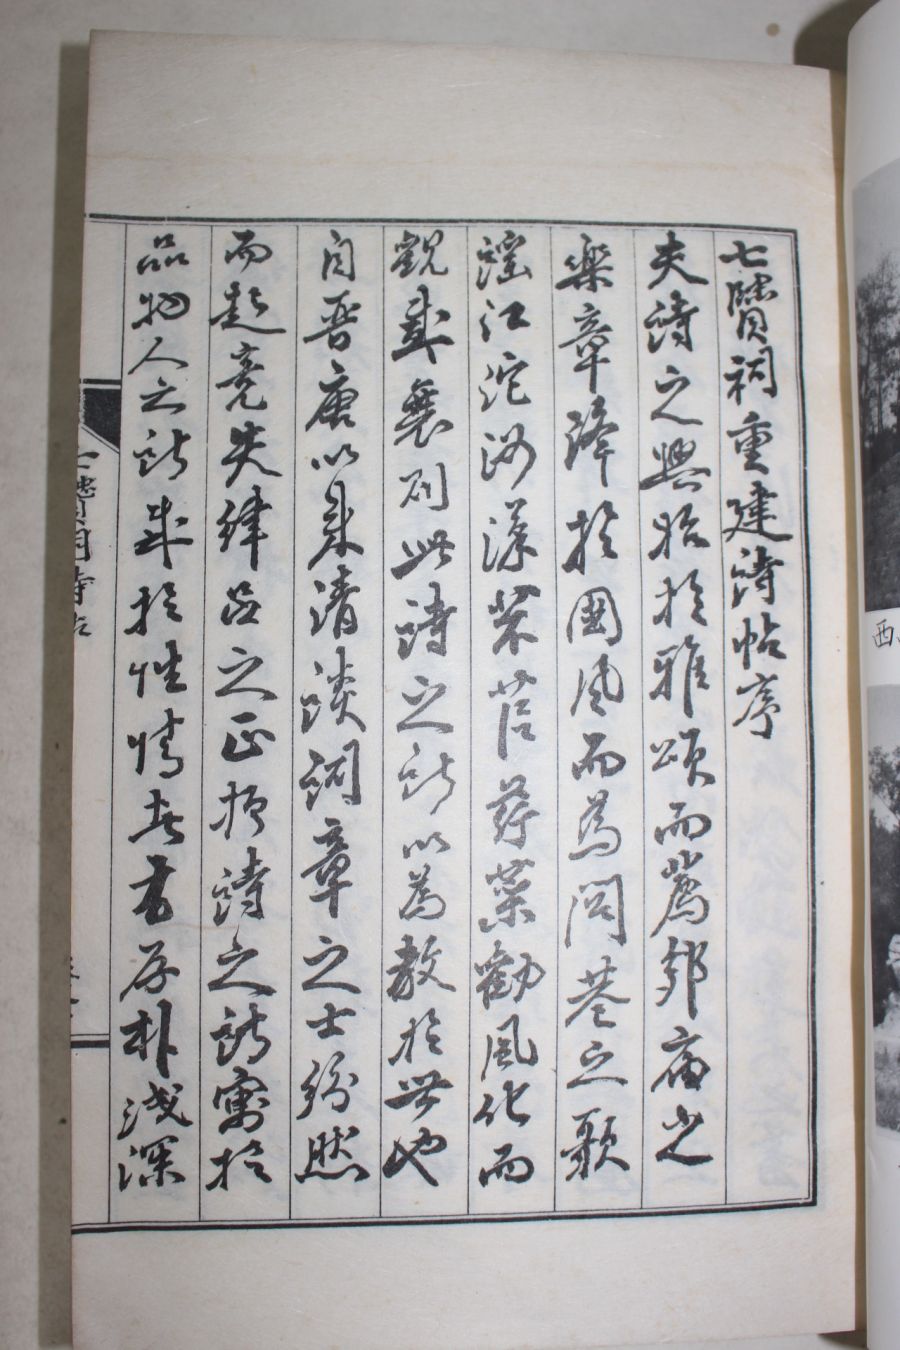 七賢祠重建詩帖序
夫詩之興始於雅頌而薦郊廟之
樂章降於國風而爲閭巷之歌
謠江沱汝漢芣苢荇菜勸風化而
觀盛衰則此詩之所以爲教於世也
自晉唐以來清談詞章之士紛然
而起竟失律呂之正抑詩之所寓於
品物人之所感於性情者有厚朴淺深
七賢祠詩帖
西